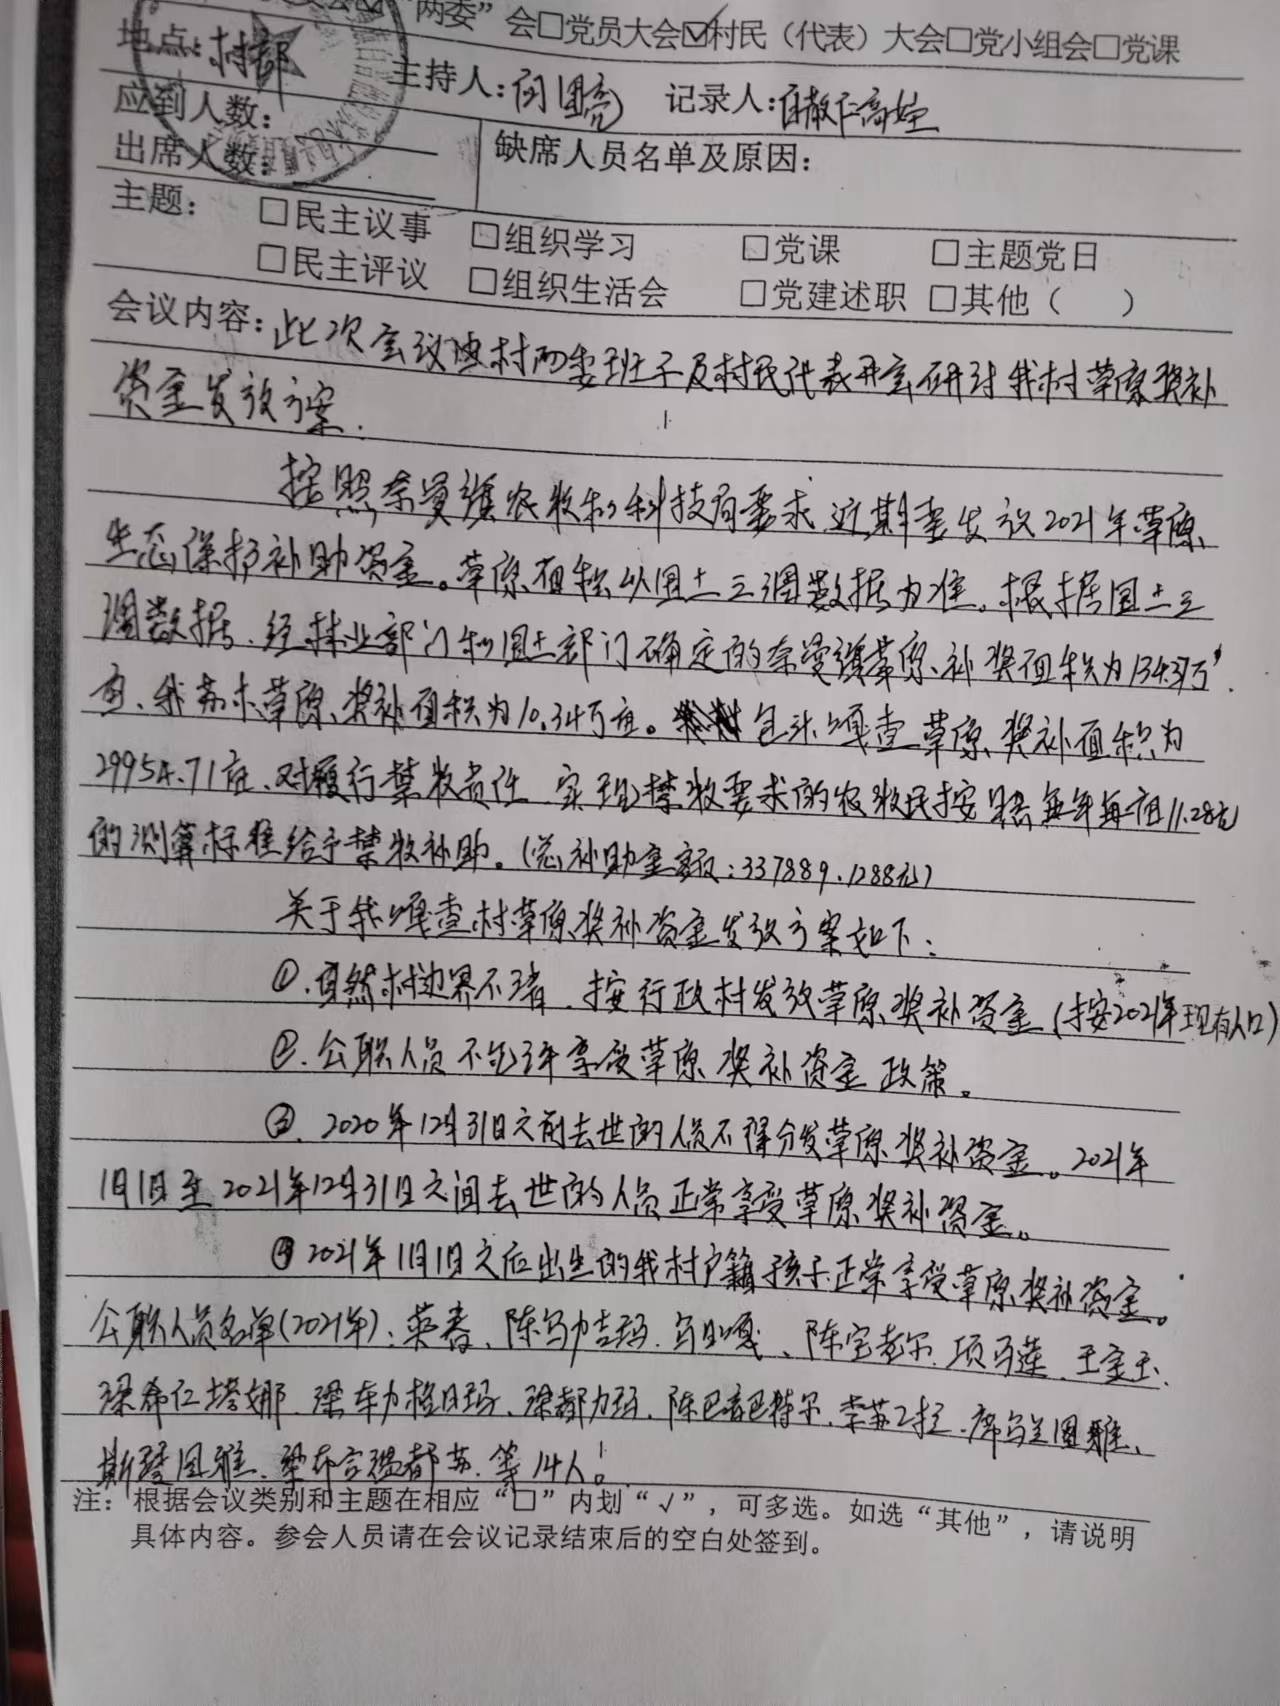 “两委”会□党员大会☑村民（代表）大会□党小组会□党课
地点：村部 主持人： 记录人：
应到人数：
出席人数： 缺席人员名单及原因：
主题： □民主议事 □组织学习 □党课 □主题党日
□民主评议 □组织生活会 □党建述职 □其他（ ）
会议内容：此次会议由村两委班子及村民代表开会研讨我村草原奖补
资金发放方案.
按照奈曼旗农牧和科技局要求,近期要发放2021年草原
生态保护补助资金。草原面积以国土三调数据为准。根据国土三
调数据.经林业部门和国土部门确定的奈曼旗草原补奖面积为134.37万
亩、我苏木草原奖补面积为10.34万亩。包斗嘎查草原奖补面积为
29954.71亩、对履行禁牧责任 实现禁牧要求的农牧民按照每年每亩11.28元
的测算标准给予禁牧补助。(总补助金额:337889.1288元)
关于我嘎查村草原奖补资金发放方案如下:
①.自然村边界不清,按行政村发放草原奖补资金(按2021年现有人口)
②.公职人员不能享受草原奖补资金政策。
③.2020年12月31日之前去世的人员不得分发草原奖补资金。2021年
1月1日至2021年12月31日之间去世的人员正常享受草原奖补资金。
④2021年1月1日之后出生的我村户籍孩子正常享受草原奖补资金。
公职人员名单(2021年):英春、陈乌力吉玛.乌日嘎、陈宝老尔.项乌莲.王金玉.
梁希仁塔娜.梁车力格日玛、梁都力玛.陈巴音巴特尔.李苏乙拉.席乌兰图雅、
斯琴图雅.等14人。
注：根据会议类别和主题在相应“□”内划“√”，可多选。如选“其他”，请说明
具体内容。参会人员请在会议记录结束后的空白处签到。